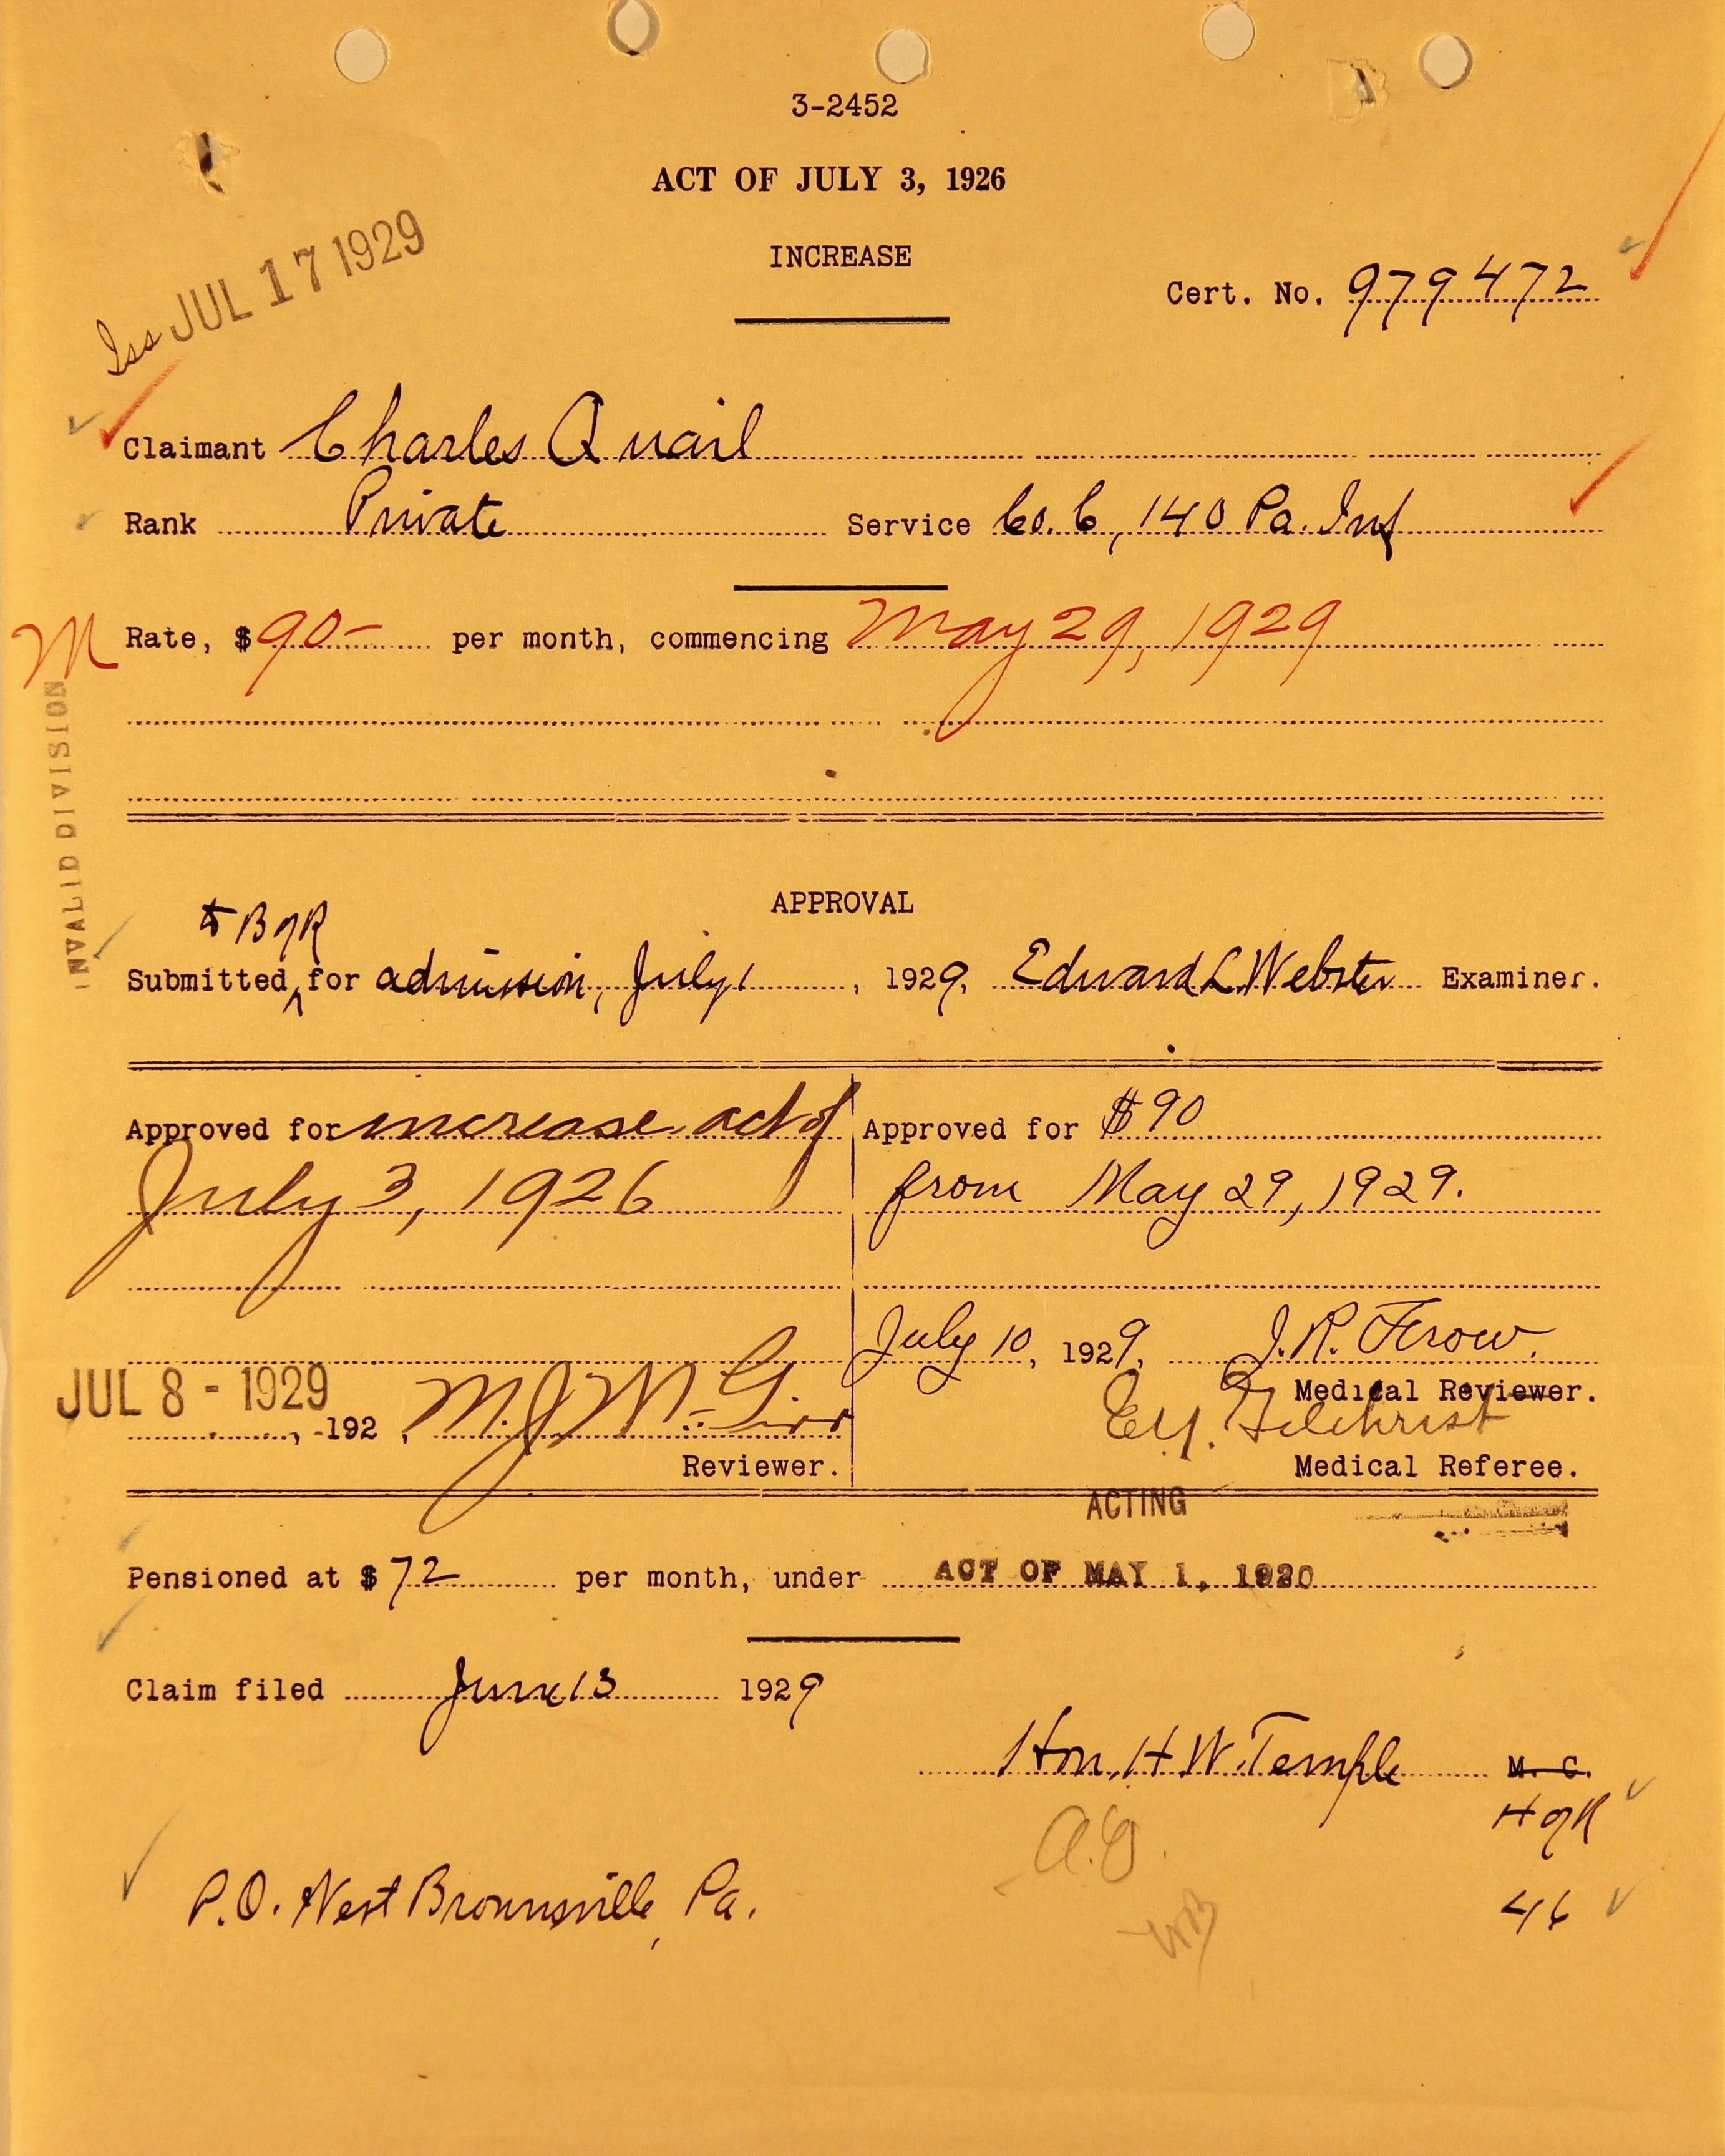 3-2452
ACT OF JULY 3, 1926
INCREASE
Iss JUL 17 1929
Cert. No. 979472
Claimant Charles Quail
Rank Private Service Co. C, 140 Pa. Inf
M Rate, $90- per month, commencing May 29, 1929
INVALID DIVISION
APPROVAL
& B of R
Submitted, for admission, July 1, 1929, Edward L. Webster Examiner.
Approved for increase act of
July 3, 1926
Approved for $90
from May 29, 1929.
July 10, 1929, J. R.
Medical Reviewer.
JUL 8 - 1929
, 192 , M. J.
Reviewer.
E. Y. Gilchrist
Medical Referee.
ACTING
Pensioned at $72 per month, under ACT OF MAY 1, 1920
Claim filed June 13 1929
Hon. H W. Temple M. C.
H of R
P.O. West Brownsville, Pa.
46